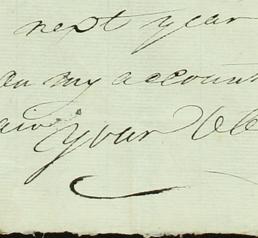 next year
on my account
your